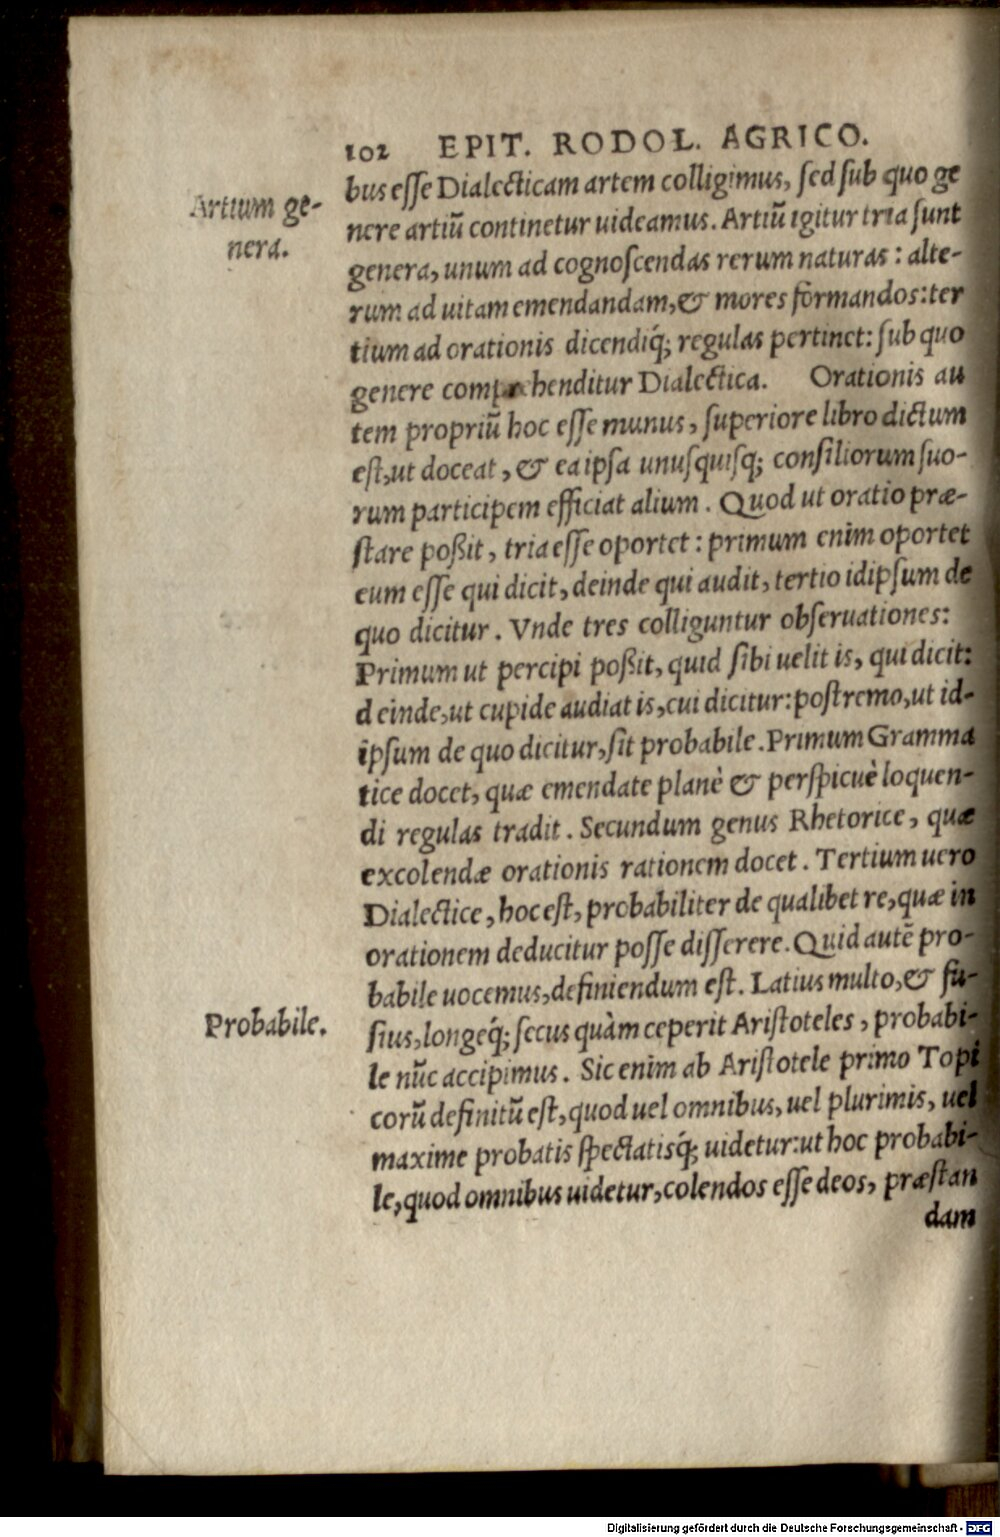 102 EPIT. RODOL. AGRICO.
Artium ge-
nera.
bus esse Dialecticam artem colligimus, sed sub quo ge
nere artiũ continetur uideamus. Artiũ igitur tria sunt
genera, unum ad cognoscendas rerum naturas : alte-
rum ad uitam emendandam, & mores formandos: ter
tium ad orationis dicendiq́; regulas pertinet: sub quo
genere comprehenditur Dialectica. Orationis au
tem propriũ hoc esse munus, superiore libro dictum
est, ut doceat, & ea ipsa unusquisq; consiliorum suo-
rum participem efficiat alium. Quod ut oratio præ-
stare poßit, tria esse oportet : primum enim oportet
eum esse qui dicit, deinde qui audit, tertio idipsum de
quo dicitur. Vnde tres colliguntur obseruationes:
Primum ut percipi poßit, quid sibi uelit is, qui dicit:
deinde, ut cupide audiat is, cui dicitur: postremo, ut id-
ipsum de quo dicitur, sit probabile. Primum Gramma
tice docet, quæ emendate planè & perspicuè loquen-
di regulas tradit. Secundum genus Rhetorice, quæ
excolendæ orationis rationem docet. Tertium uero
Dialectice, hoc est, probabiliter de qualibet re, quæ in
orationem deducitur posse disserere. Quid autẽ pro-
babile uocemus, definiendum est. Latius multo, & fu-
Probabile.
sius, longeq́; secus quàm ceperit Aristoteles, probabi-
le nũc accipimus. Sic enim ab Aristotele primo Topi
corũ definitũ est, quod uel omnibus, uel plurimis, uel
maxime probatis spectatisq́; uidetur: ut hoc probabi-
le, quod omnibus uidetur, colendos esse deos, præstan
dam
Digitalisierung gefördert durch die Deutsche Forschungsgemeinschaft - DFG